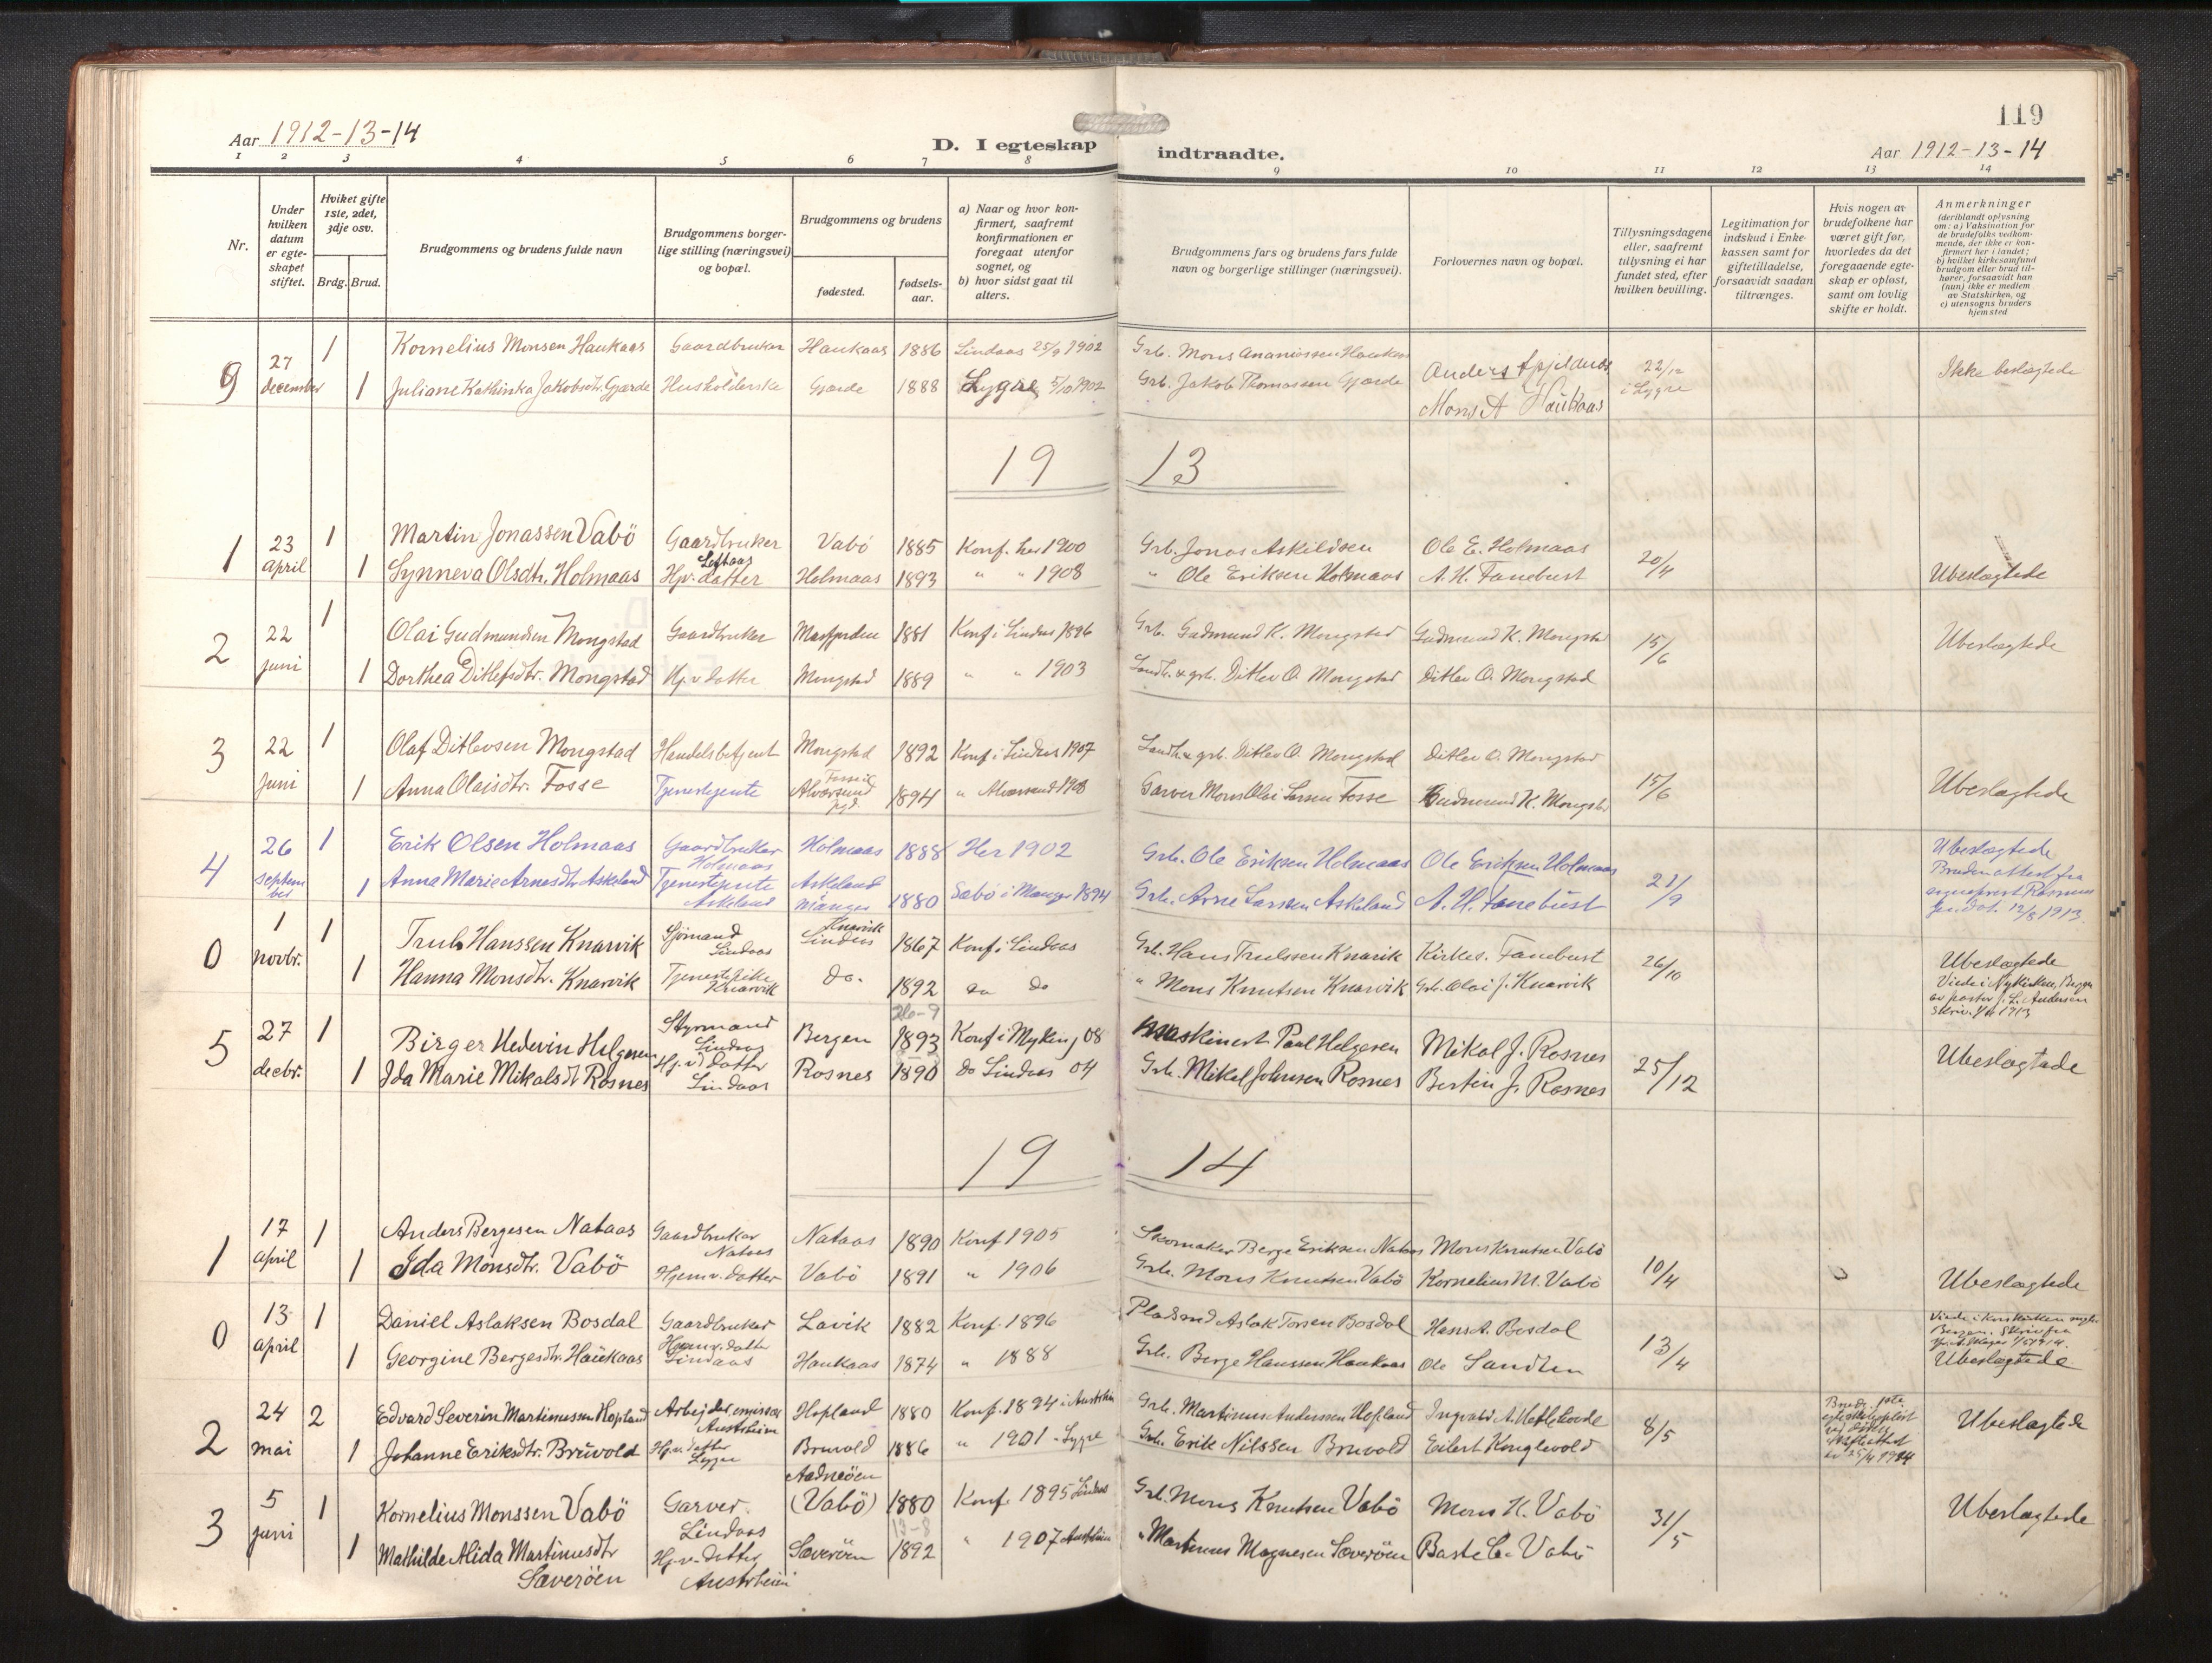 119
Aar 1912-13-14
D. I egteskap indtraadte.
Aar 1912-13-14
1 2 3 4 5 6 7 8 9 10 11 12 13 14
Nr.
Under hvilken datum er egte-skapet stiftet.
Hviket gifte 1ste, 2det, 3dje osv.
Brdg. Brud.
Brudgommens og brudens fulde navn
Brudgommens borger-lige stilling (næringsvei) og bopæl.
Brudgommens og brudens
fødested.
fødsels-aar.
a) Naar og hvor kon-firmert, saafremt konfirmationen er foregaat utenfor sognet, og
b) hvor sidst gaat til alters.
Brudgommens fars og brudens fars fulde navn og borgerlige stillinger (næringsvei).
Forlovernes navn og bopæl.
Tillysningsdagene eller, saafremt tillysning ei har fundet sted, efter hvilken bevilling.
Legitimation for indskud i Enke-kassen samt for giftetilladelse, forsaavidt saadan tiltrænges.
Hvis nogen av brudefolkene har været gift før, hvorledes da det foregaaende egte-skap er opløst, samt om lovlig skifte er holdt.
Anmerkninger (deriblandt oplysning om: a) Vaksination for de brudefolks vedkom-mende, der ikke er kon-firmert her i landet; b) hvilket kirkesamfund brudgom eller brud til-hører, forsaavidt han (hun) ikke er medlem av Statskirken, og c) utensogns bruders hjemsted
9 27 december 1 Kornelius Monsen Haukaas Gaardbruker Haukaas 1886 Lindaas 25/9 1902 Grb. Mons Ananiassen Haukaas Anders Apjeldnes 22/12 i Lygre Ikke beslægtede
1 Juliane Kathinka Jakobsdtr. Gjærde Husholderske Gjærde 1888 Lygre 5/10 1902 Grb. Jakob Thomassen Gjærde Mons A Haukaas
19 13
1 23 april 1 Martin Jonassen Vabö Gaardbruker Vabö 1885 Konf. her 1900 Grb. Jonas Askildsen Ole E. Holmaas 20/4
1 Synneva Olsdtr. Holmaas Hjv. datter Holmaas 1893 " " 1908 " Ole Eriksen Holmaas A. H. Fanebust Ubeslægtede
2 22 juni 1 Olai Gudmundsen Mongstad Gaardbruker Masfjorden 1881 Konf i Lindaas 1896 Grb. Gudmund K. Mongstad Gudmund K. Mongstad 15/6 Ubeslægtede
1 Dorthea Ditlefsdtr. Mongstad Hj.v datter Mongstad 1889 " " 1903 Landh. & grb. Ditlev O. Mongstad Ditlev O. Mongstad
3 22 juni 1 Olaf Ditlevsen Mongstad Handelsbetjent Mongstad 1892 Konf i Lindaas 1907 Landh. & grb. Ditlev O. Mongstad Ditlev O. Mongstad 15/6
1 Anna Olaisdtr. Fosse Tjenestejente Fosse i Alversund 1894 " Alversund 1908 Garver Mons Olai Larsen Fosse Gudmund K. Mongstad Ubeslægtede
4 26 september 1 Erik Olsen Holmaas Gaardbruker Holmaas Holmaas 1888 Her 1902 Grb. Ole Eriksen Holmaas Ole Eriksen Holmaas 21/9 Ubeslægtede
1 Anna Marie Arnesdtr Askeland Tjenestejente Askeland Askeland Manger 1880 Sæbö i Manger 1894 Grb. Arne Larssen Askeland A. H. Fanebust Bruden attest fra sogneprest Rosnes dat. 12/8 1913.
0 1 novbr. 1 Truls Hanssen Knarvik Sjömand Lindaas Knarvik Lindaas 1867 Konf i Lindaas Grb. Hans Trulssen Knarvik Kirkes. Fanebust 26/10 Ubeslægtede
1 Hanna Monsdtr. Knarvik Tjenestepike Knarvik do. 1892 do do " Mons Knutsen Knarvik Grb. Olai J. Knarvik Viede i Nykirken, Bergen av pastor J. L. Andersen
5 27 decbr. 1 Birger Hedevin Helgesen Styrmand Lindaas Bergen 26-9 1893 Konf i Myking 08 Maskinest Paul Helgesen Mikal J. Rosnes 25/12 Ubeslægtede
1 Ida Marie Mikalsdt Rosnes Hj.v. datter Lindaas Rosnes 1890 do Lindaas 04 Grb. Mikal Johnsen Rosnes Bertin J. Rosnes
19 14
1 17 april 1 Anders Bergesen Nataas Gaardbruker Nataas Nataas 1890 Konf 1905 Skomaker Berge Eriksen Nataas Mons Knutsen Vabö 10/4
1 Ida Monsdtr. Vabö Hjemv. datter Vabö 1891 " 1906 Grb. Mons Knutsen Vabö Kornelius M. Vabö Ubeslægtede
0 13 april 1 Daniel Aslaksen Bosdal Gaardbruker Lavik 1882 Konf. 1896 Pladsmd Aslak Torsen Bosdal Hans A. Bosdal 13/4 Viede i Korskirken
1 Georgine Bergesdtr. Haukaas Hjemv. datter Lindaas Haukaas 1874 " 1888 Grb. Berge Hanssen Haukaas Ole Sandten Ubeslægtede
2 24 mai 2 Edvard Severin Martinussen Hopland Arbejder, emissær Austrheim Hopland 1880 Konf. 1894 i Austrheim Grb. Martinus Anderssen Hopland Ingvald A. Hatlehovde 8/5 25/4 1914 Ubeslægtede
1 Johanne Eriksdtr. Bruvold Hj.v. datter Lygre Bruvold 1886 " 1901 - Lygre Grb. Erik Nilssen Bruvold Eilert Konglevold
3 5 juni 1 Kornelius Monssen Vabö Garver. Lindaas Aadneöen (Vabö) 1880 Konf. 1895 Lindaas Grb. Mons Knutsen Vabö Mons K. Vabö 31/5 Ubeslægtede
1 Mathilde Alida Martinusdtr Sæveröen Hj.v. datter Austrheim Sæveröen 13-8 1892 " 1907 Austrheim " Martinus Magnesen Sæveröen Baste C. Vabö